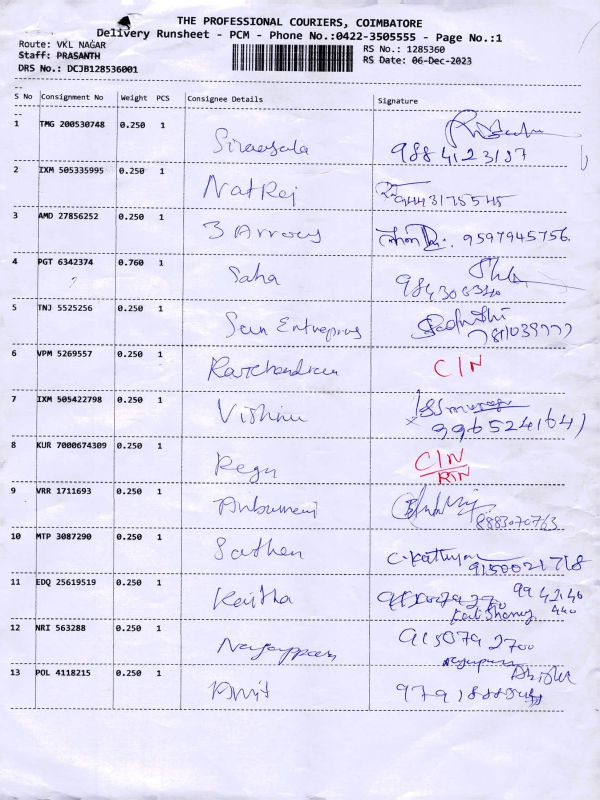 THE PROFESSIONAL COURIERS, COIMBATORE
Delivery Runsheet - PCM - Phone No.:0422-3505555 - Page No.:1
Route: VKL NAGAR RS No.: 1285360
Staff: PRASANTH RS Date: 06-Dec-2023
DRS No.: DCJB128536001
S No Consignment No Weight PCS Consignee Details Signature
1 TMG 200530748 0.250 1
9884123187
2 IXM 505335995 0.250 1 NatRaj
9443175545
3 AMD 27856252 0.250 1 3 Arrows 9597945756
4 PGT 6342374 0.760 1 Saha
5 TNJ 5525256 0.250 1
6 VPM 5269557 0.250 1 C/N
7 IXM 505422798 0.250 1 Vishnu
9965241641
8 KUR 7000674309 0.250 1 C/N
9 VRR 1711693 0.250 1
8883070763
10 MTP 3087290 0.250 1 Sathen
11 EDQ 25619519 0.250 1
12 NRI 563288 0.250 1
9150792700
13 POL 4118215 0.250 1 Amit